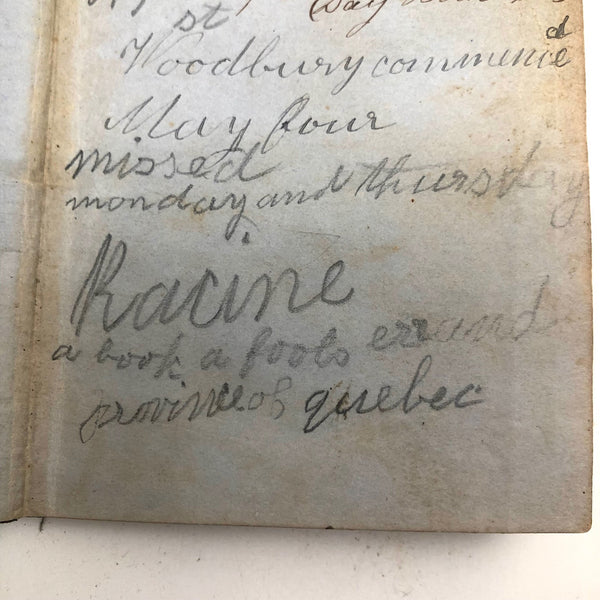 st (Day
d
Woodbury commence
May four
missed
monday and thursday
Racine
a book a fools errand
province of quebec